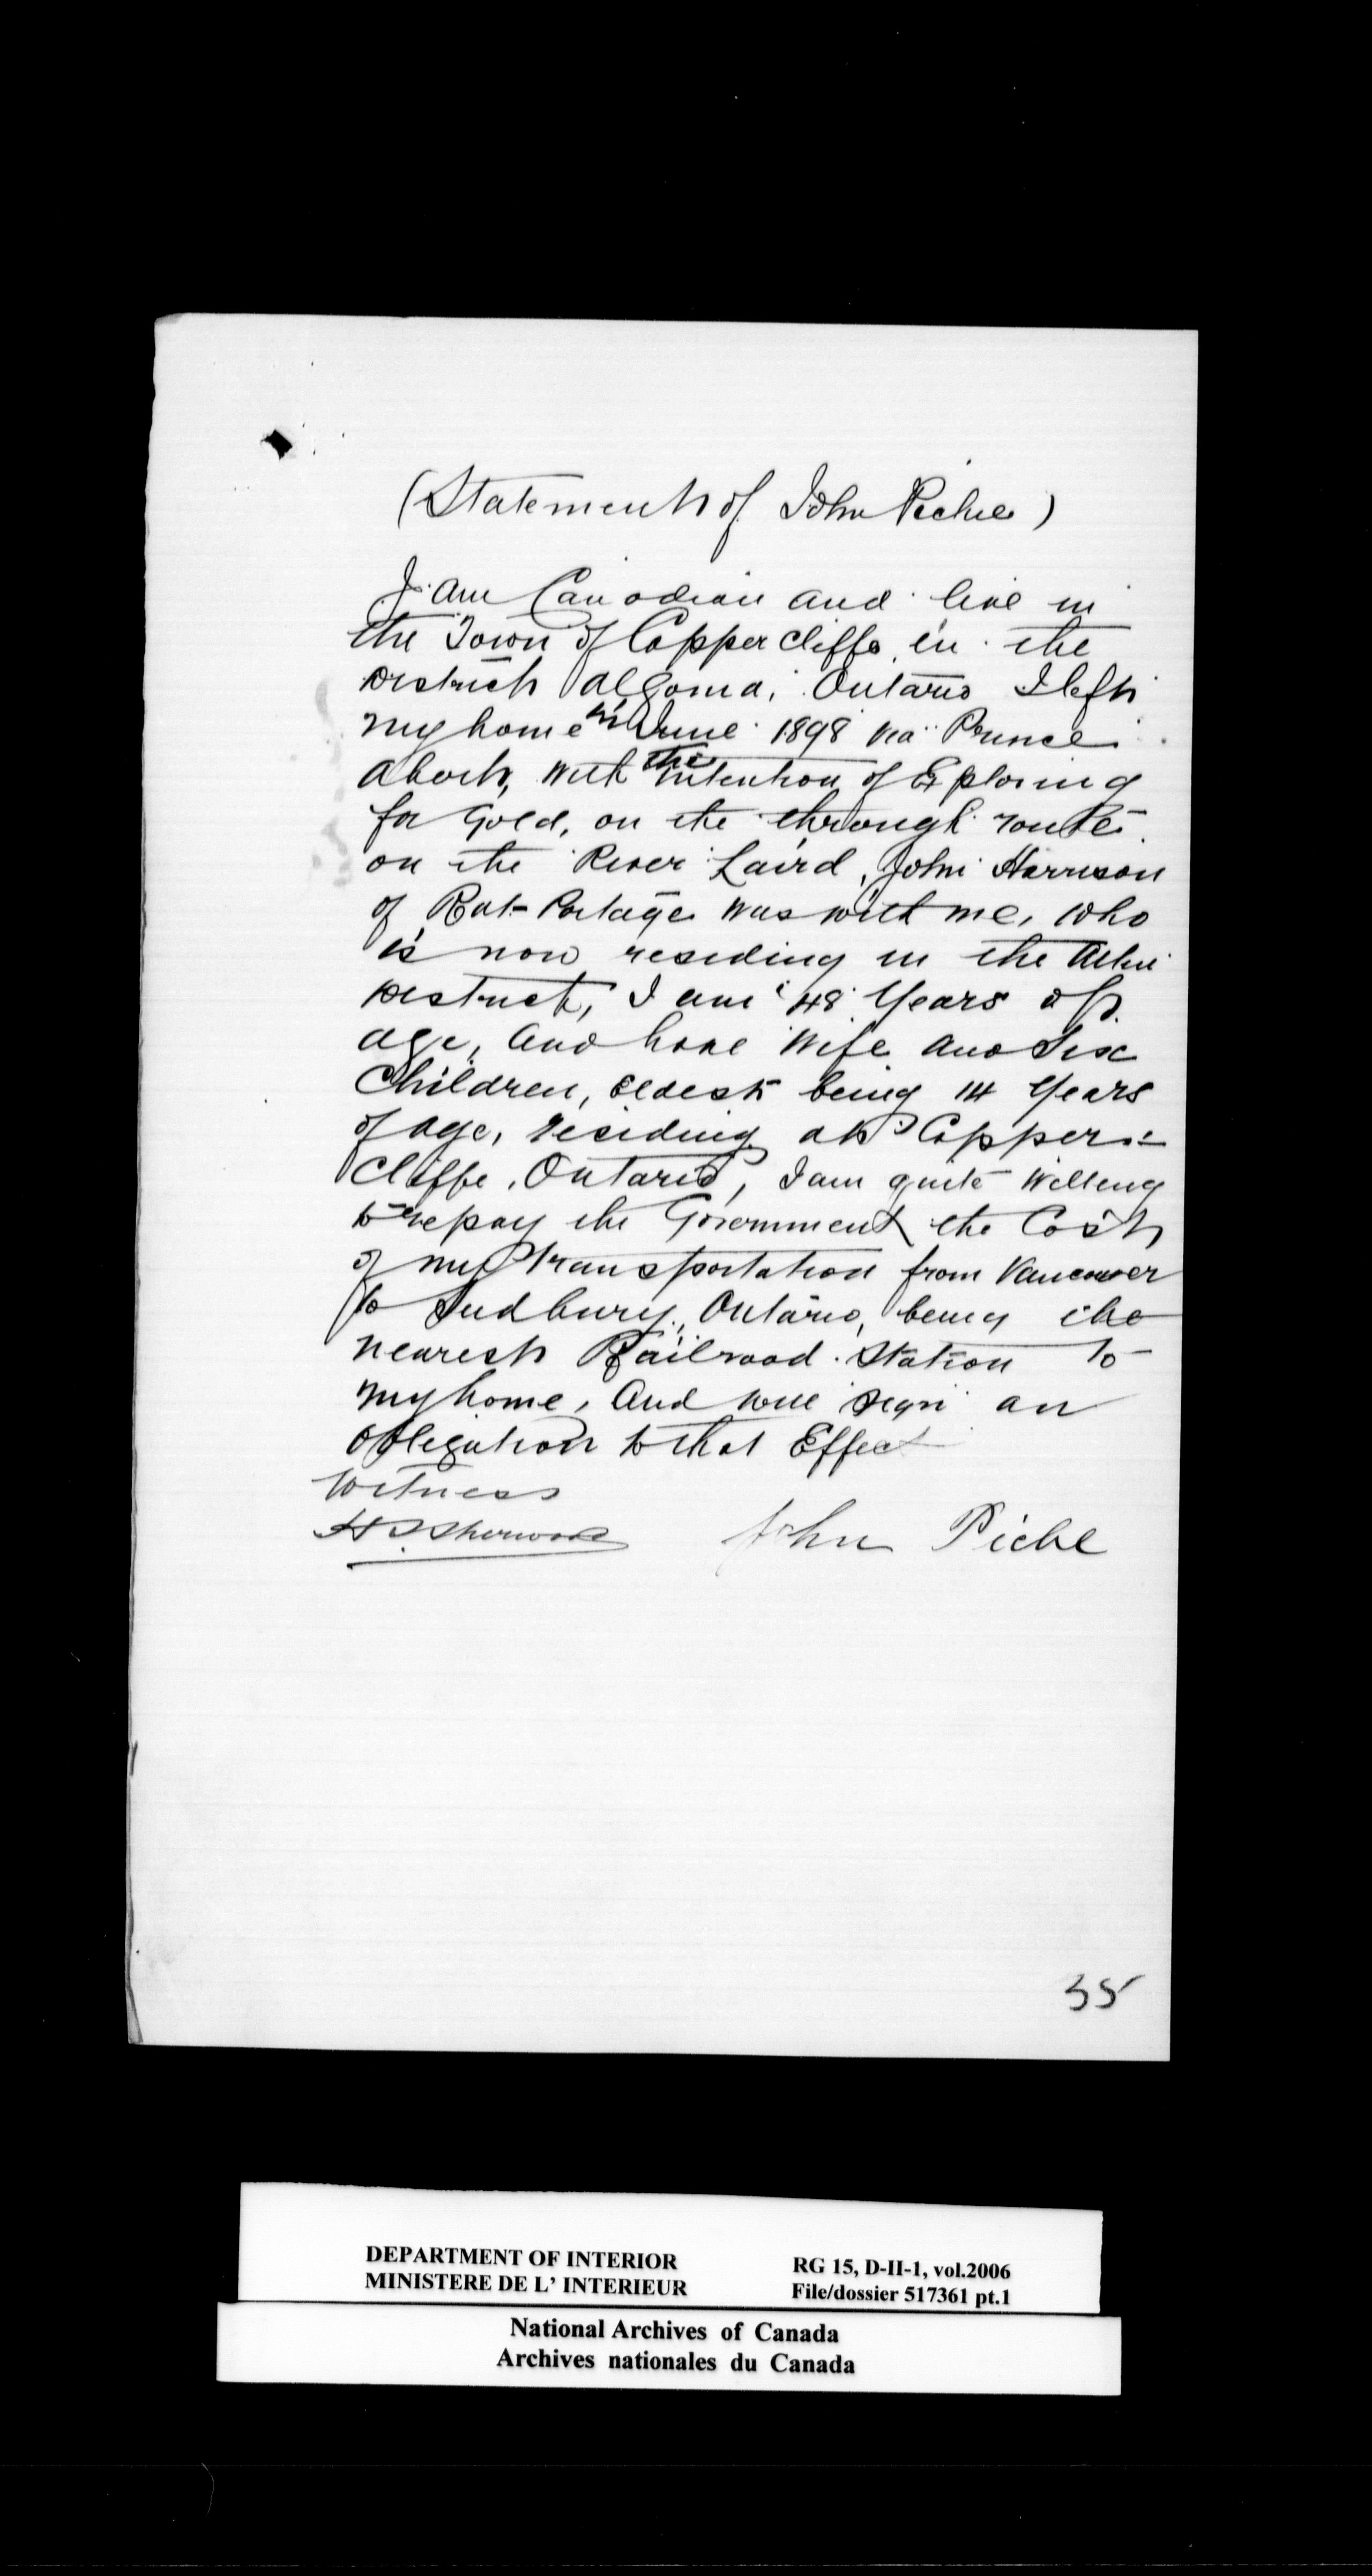 (Statement of John Piche)
I am Canadian and live in
the Town of Coppercliffe, in the
District Algoma, Ontario I left
my home in June 1898 via Prince
Albert, with the intention of Exploring
for Gold, on the through route
on the River Laird, John Harrison
of Rat-Portage was with me, who
is now residing in the Atlin
District, I am 48 Years of
age, and have Wife and Six
Children, Eldest being 14 Years
of age, residing at Copper=
Cliffe, Ontario, I am quite Willing
to repay the Government the Cost
of my transportation from Vancouver
to Sudbury, Ontario, being the
nearest Railroad Station to
my home, And will sign an
Obligation to that Effect
Witness
H S Sherwood John Piche
35
DEPARTMENT OF INTERIOR RG 15, D-II-1, vol.2006
MINISTERE DE L' INTERIEUR File/dossier 517361 pt.1
National Archives of Canada
Archives nationales du Canada